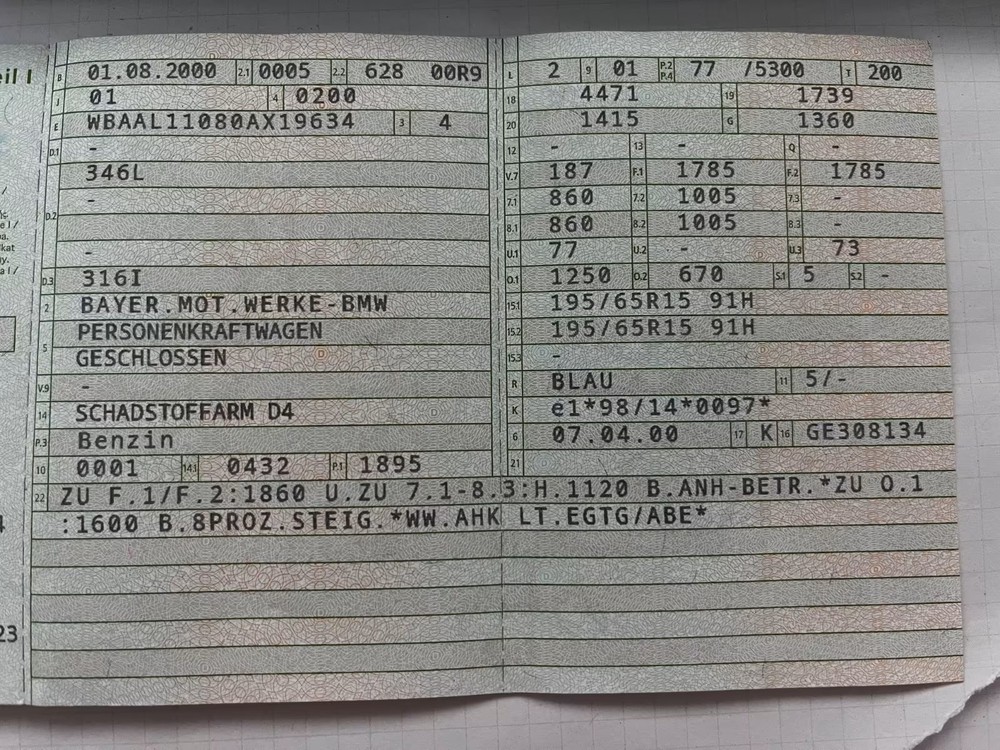 eil I
B 01.08.2000 2.1 0005 2.2 628 00R9
J 01 4 0200
E WBAAL11080AX19634 3 4
D.1 -
346L
D.2 -
-
D.3 316I
2 BAYER.MOT.WERKE-BMW
5 PERSONENKRAFTWAGEN
GESCHLOSSEN
V.9 -
14 SCHADSTOFFARM D4
P.3 Benzin
10 0001 14.1 0432 P.1 1895
L 2 9 01 P.2 P.4 77 /5300 T 200
18 4471 19 1739
20 1415 G 1360
12 - 13 - Q -
V.7 187 F.1 1785 F.2 1785
7.1 860 7.2 1005 7.3 -
8.1 860 8.2 1005 8.3 -
U.1 77 U.2 - U.3 73
O.1 1250 O.2 670 S.1 5 S.2 -
15.1 195/65R15 91H
15.2 195/65R15 91H
15.3 -
R BLAU 11 5/-
K e1*98/14*0097*
6 07.04.00 17 K 16 GE308134
21
22 ZU F.1/F.2:1860 U.ZU 7.1-8.3:H.1120 B.ANH-BETR.*ZU O.1
:1600 B.8PROZ.STEIG.*WW.AHK LT.EGTG/ABE*
23